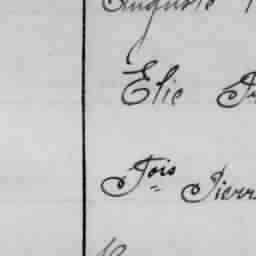 Auguste
Elie
Fois Pierr